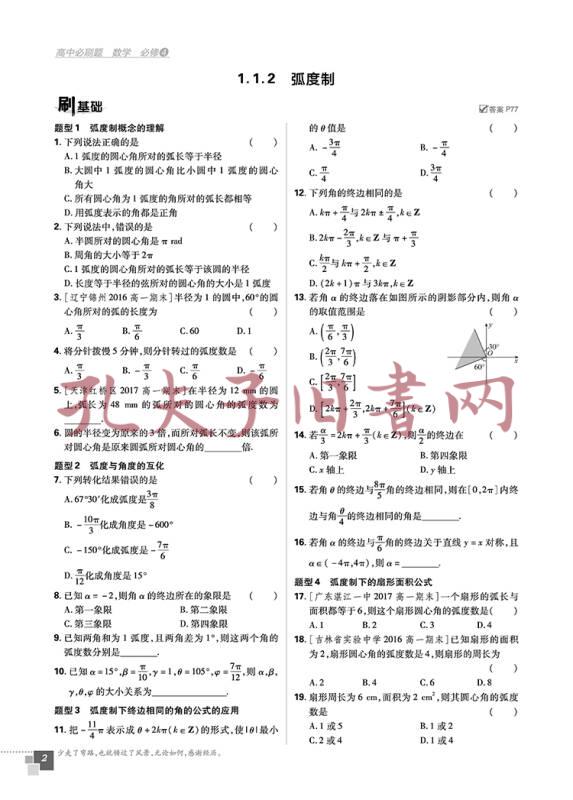 高中必刷题 数学 必修4
1.1.2 弧度制
刷基础
答案 P77
题型1 弧度制概念的理解
1. 下列说法正确的是 ( )
A. 1弧度的圆心角所对的弧长等于半径
B. 大圆中1弧度的圆心角比小圆中1弧度的圆心
角大
C. 所有圆心角为1弧度的角所对的弧长都相等
D. 用弧度表示的角都是正角
2. 下列说法中,错误的是 ( )
A. 半圆所对的圆心角是 π rad
B. 周角的大小等于 2π
C. 1弧度的圆心角所对的弧长等于该圆的半径
D. 长度等于半径的弦所对的圆心角的大小是1弧度
3. [辽宁锦州2016高一期末]半径为1的圆中,60°的圆
心角所对的弧的长度为 ( )
A. π/3 B. π/6 C. 60 D. 1
4. 将分针拨慢5分钟,则分针转过的弧度数是 ( )
A. π/3 B. -π/3 C. π/6 D. -π/6
5. [天津红桥区2017高一期末]在半径为 12 mm 的圆
上,弧长为 48 mm 的弧所对的圆心角的弧度数为
________.
6. 圆的半径变为原来的3倍,而所对弧长不变,则该弧所
对圆心角是原来圆弧所对圆心角的________倍.
题型2 弧度与角度的互化
7. 下列转化结果错误的是 ( )
A. 67°30′化成弧度是3π/8
B. -10π/3化成角度是-600°
C. -150°化成弧度是-7π/6
D. π/12化成角度是15°
8. 已知 α=-2,则角α的终边所在的象限是 ( )
A. 第一象限 B. 第二象限
C. 第三象限 D. 第四象限
9. 已知两角和为1弧度,且两角差为1°,则这两个角的
弧度数分别是________.
10. 已知 α=15°,β=π/10,γ=1,θ=105°,φ=7π/12,则 α,β,
γ,θ,φ的大小关系为________________.
题型3 弧度制下终边相同的角的公式的应用
11. 把-11/4π表示成 θ+2kπ(k∈Z)的形式,使|θ|最小
的θ值是 ( )
A. -3π/4 B. -π/4
C. π/4 D. 3π/4
12. 下列角的终边相同的是 ( )
A. kπ+π/4与2kπ±π/4,k∈Z
B. 2kπ-2π/3,k∈Z与π+π/3
C. kπ/2与kπ+π/2,k∈Z
D. (2k+1)π与3kπ,k∈Z
13. 若角α的终边落在如图所示的阴影部分内,则角α
的取值范围是 ( )
A. (π/6,π/3)
B. (2π/3,7π/6)
C. [2π/3,7π/6]
D. [2kπ+2π/3,2kπ+7π/6](k∈Z)
y
30°
O
x
60°
14. 若α/3=2kπ+π/3(k∈Z),则α/2的终边在 ( )
A. 第一象限 B. 第四象限
C. x轴上 D. y轴上
15. 若角θ的终边与8π/5角的终边相同,则在[0,2π]内终
边与角θ/4的终边相同的角是________.
16. 若角α的终边与π/6角的终边关于直线 y=x 对称,且
α∈(-4π,4π),则α=________.
题型4 弧度制下的扇形面积公式
17. [广东湛江一中2017高一期末]一个扇形的弧长与
面积都等于6,则这个扇形圆心角的弧度数是( )
A. 1 B. 2 C. 3 D. 4
18. [吉林省实验中学2016高一期末]已知扇形的面积
为2,扇形圆心角的弧度数是4,则扇形的周长为
( )
A. 2 B. 4 C. 6 D. 8
19. 扇形周长为 6 cm,面积为 2 cm²,则其圆心角的弧度
数是 ( )
A. 1或5 B. 1或2
C. 2或4 D. 1或4
2
少走了弯路,也就错过了风景,无论如何,感谢经历。
孔夫子旧书网